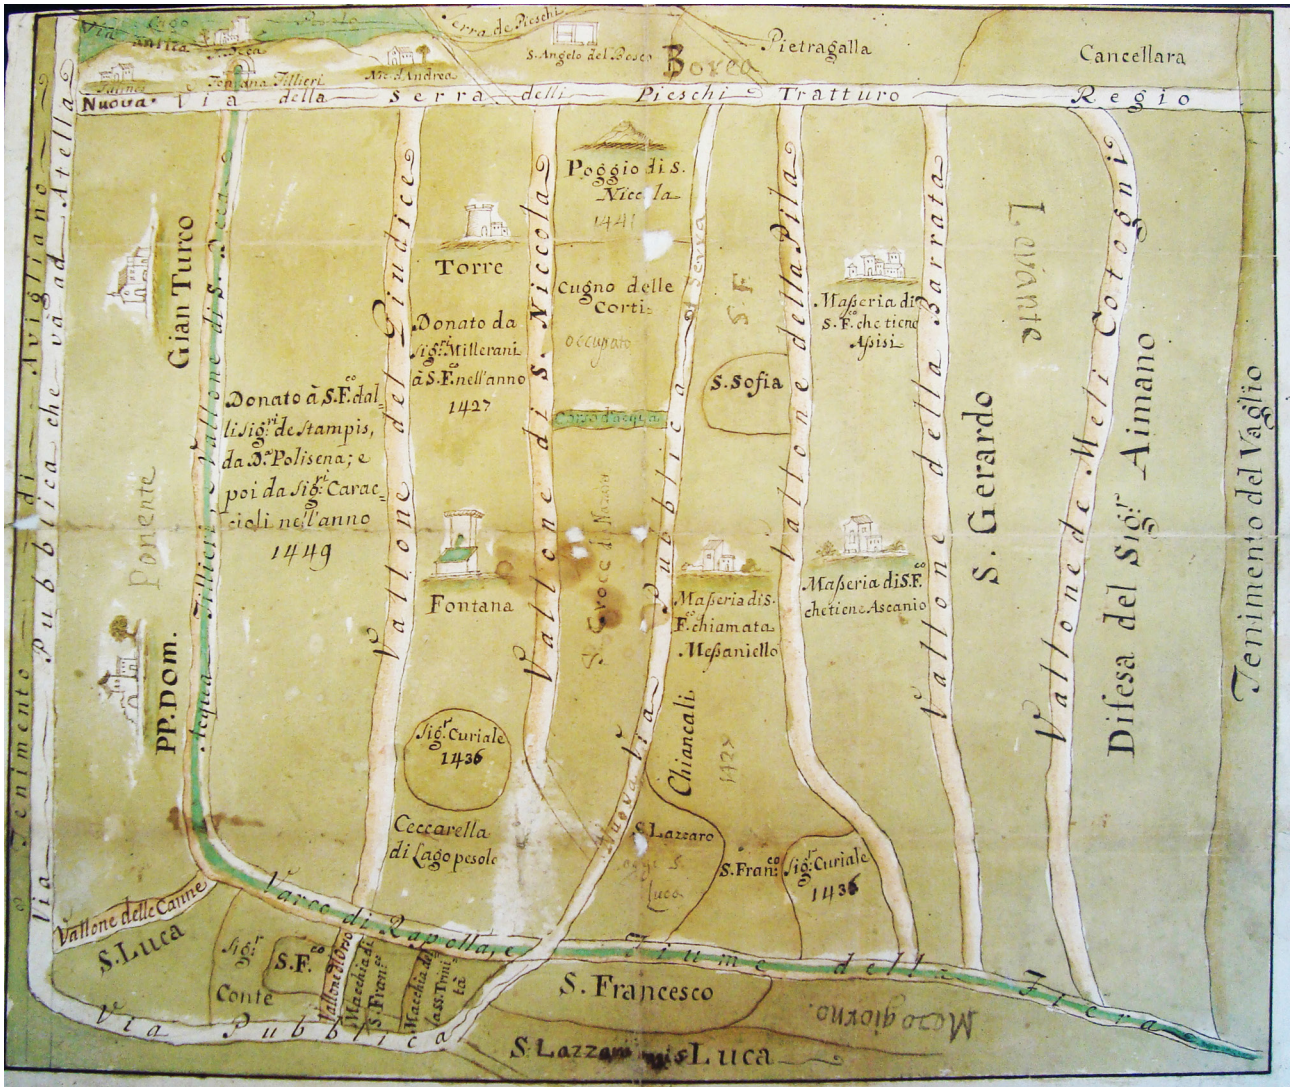 Lago Pesole
Via Antica
Serra de Pieschi
S. Angelo del Bosco
Borea
Pietragalla
Cancellara
Fontana Tillieri
Nic. d'Andrea
Nuova Via della Serra delli Pieschi Tratturo Regio
Tenimento di Avigliano
Via Pubblica che và ad Atella
Gian Turco
Ponente
PP. Dom.
Acqua Tillieri, e Vallone di S. Decca
Donato à S. F.co dal-
li Sig.ri de Stampis,
da D.a Polisena; e
poi da Sig.ri Carac-
cioli nell'anno
1449
Vallone del Giudice
Torre
Donato da
Sig.ri Millerani
à S. F.co nell'anno
1427
Fontana
Sig.r Curiale
1436
Ceccarella
di Lago pesole
Vallone di S. Niccola
Poggio di S.
Niccola
1441
Cugno delle
Corti:
occupato
Corso d'acqua
S. Croce di
Nuova Via Pubblica di Serra
S. F.
S. Sofia
Masseria di S.
F.co chiamata
Messaniello
Chiancali
1427
S. Lazzaro
oggi S.
Luca
S. Fran.co
Sig.r Curiale
1436
Vallone della Pila
Masseria di
S. F.co che tiene
Assisi
Masseria di S. F.co
che tiene Ascanio
Vallone della Barrata
Levante
S. Gerardo
Vallone de Meli Cotogni
Difesa del Sig.r Aimano
Tenimento del Vaglio
Vallone delle Canne
S. Luca
Varco di Rapolla, e Fiume della Fiera
Sig.r
Conte
S. F.co
Vallone dell'Orso
Macchia di
S. Fran.co
Macchia del
la SS. Trini
tà
Via Pubblica
S. Francesco
Mezogiorno
S. Lazzaro
Luca